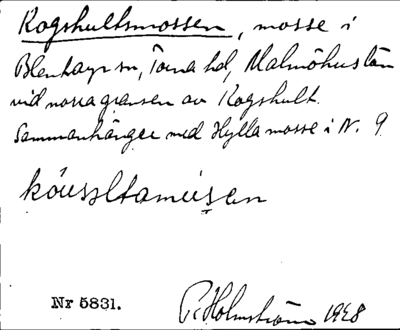 Kogshultsmossen, mosse i
Blentarps sn, Torna hd, Malmöhus län
vid norra gränsen av Kogshult.
Sammanhänger med Hylla mosse i N. 9
Nr 5831.
P. Holmström 1928